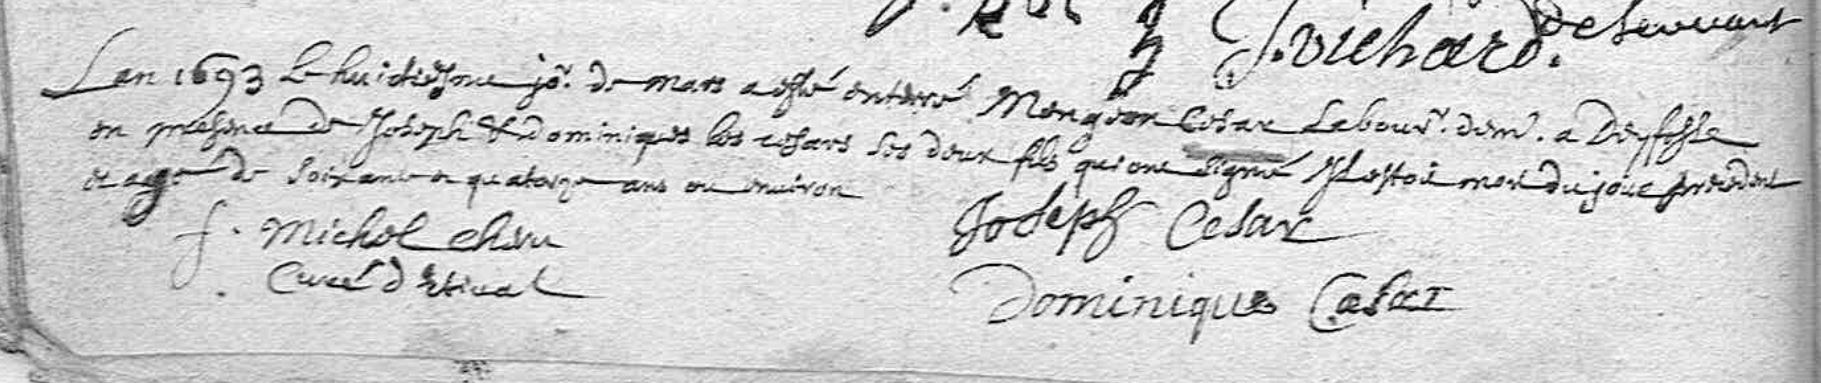 J. Vichard. desservant
Lan 1693 le huictiesme jor. de mars a esté enterré Mengeon Cesar Labourr. demt. a Deyfosse
en presence de Joseph & dominiques les cesars ses deux fils qui ont signé Il estoit mort du jour precedent
et agé de soixante et quatorze ans ou environ
f. Michel
Joseph Cesar
Curé d'Etival
Dominique Cesar